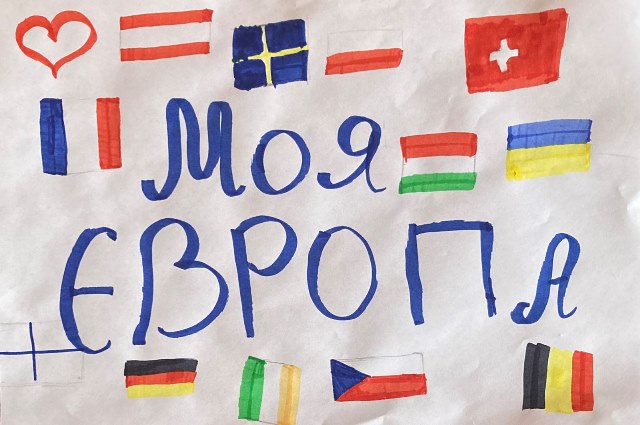 Моя
ЄВРОПА